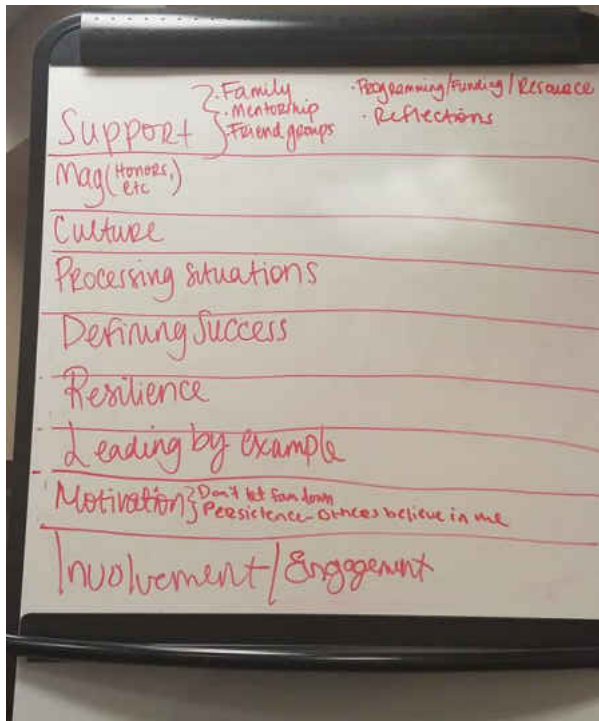 Support
· Family
· Mentorship
· Friend groups
· Programming/Funding/Resource
· Reflections
Mag (Honors, etc)
Culture
Processing situations
Defining Success
Resilience
Leading by example
Motivation
Don't let fam down
Persistence - Others believe in me
Involvement/Engagement